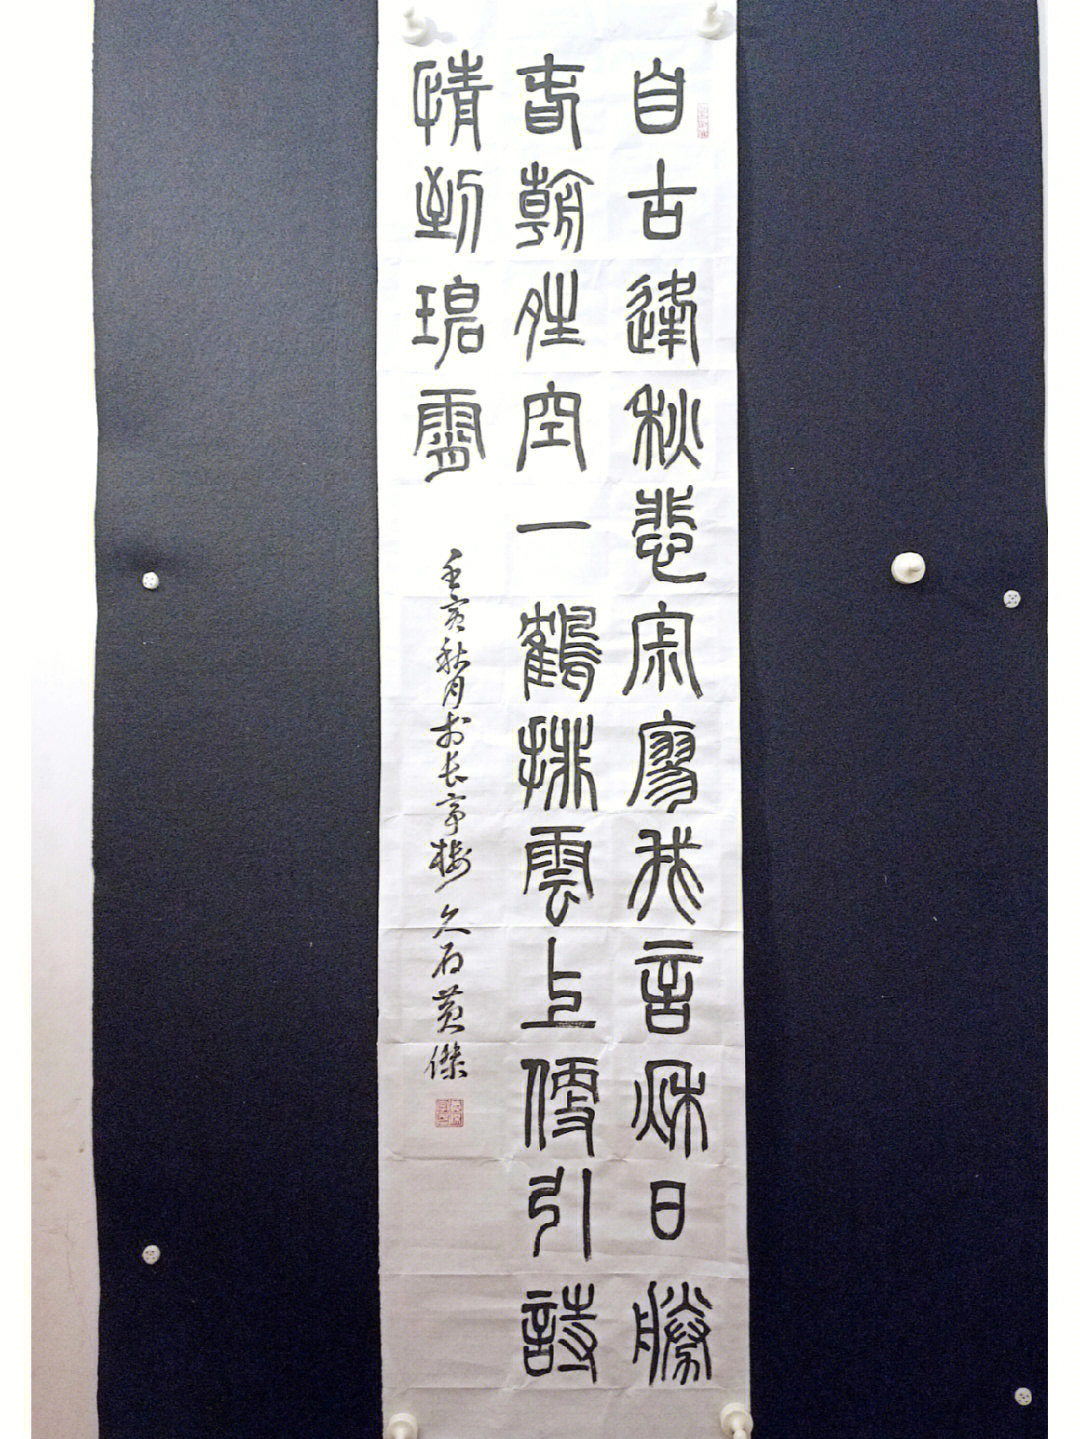 自古逢秋悲寂寥我言秋日勝
春朝晴空一鶴排雲上便引詩
情到碧霄
壬寅秋月於长亭楼 久石黄傑